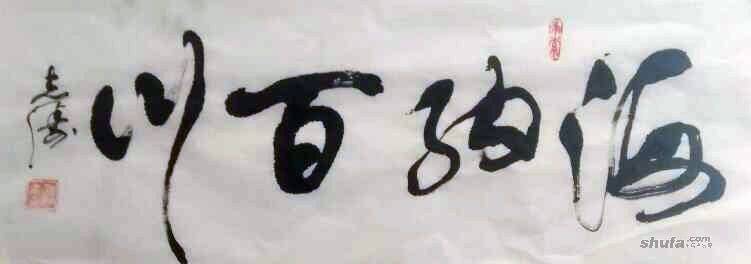 海纳百川
志涛
shufa.com